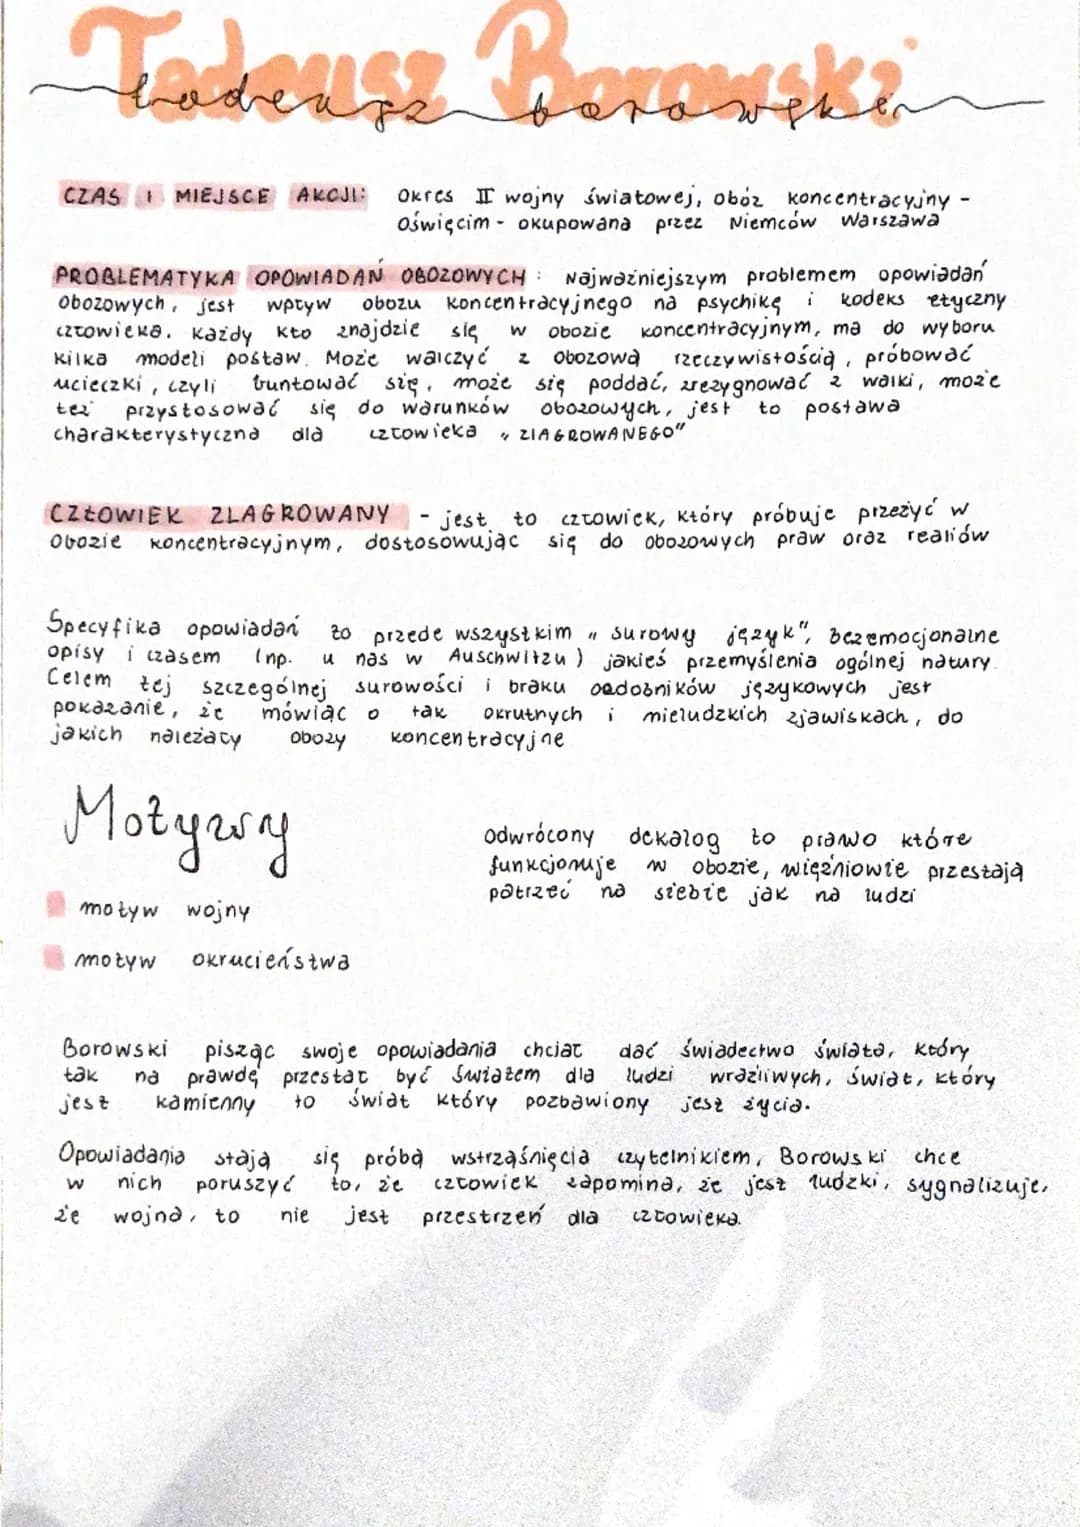 Tadeusz Borowski
tadeusz borowski
CZAS I MIEJSCE AKCJI: Okres II wojny światowej, obóz koncentracyjny -
Oświęcim - okupowana przez Niemców Warszawa
PROBLEMATYKA OPOWIADAŃ OBOZOWYCH: Najważniejszym problemem opowiadań
obozowych, jest wpływ obozu koncentracyjnego na psychikę i kodeks etyczny
człowieka. Każdy kto znajdzie się w obozie koncentracyjnym, ma do wyboru
kilka modeli postaw. Może walczyć z obozową rzeczywistością, próbować
ucieczki, czyli buntować się, może się poddać, zrezygnować z walki, może
też przystosować się do warunków obozowych, jest to postawa
charakterystyczna dla człowieka „ZLAGROWANEGO"
CZŁOWIEK ZLAGROWANY - jest to człowiek, który próbuje przeżyć w
obozie koncentracyjnym, dostosowując się do obozowych praw oraz realiów
Specyfika opowiadań to przede wszystkim „surowy język", bezemocjonalne
opisy i czasem (np. u nas w Auschwitzu) jakieś przemyślenia ogólnej natury.
Celem tej szczególnej surowości i braku ozdobników językowych jest
pokazanie, że mówiąc o tak okrutnych i nieludzkich zjawiskach, do
jakich należały obozy koncentracyjne
Motywy
motyw wojny
motyw okrucieństwa
odwrócony dekalog to prawo które
funkcjonuje w obozie, więźniowie przestają
patrzeć na siebie jak na ludzi
Borowski pisząc swoje opowiadania chciał dać świadectwo świata, który
tak na prawdę przestał być światem dla ludzi wrażliwych, świat, który
jest kamienny to świat który pozbawiony jest życia.
Opowiadania stają się próbą wstrząśnięcia czytelnikiem, Borowski chce
w nich poruszyć to, że człowiek zapomina, że jest ludzki, sygnalizuje,
że wojna, to nie jest przestrzeń dla człowieka.